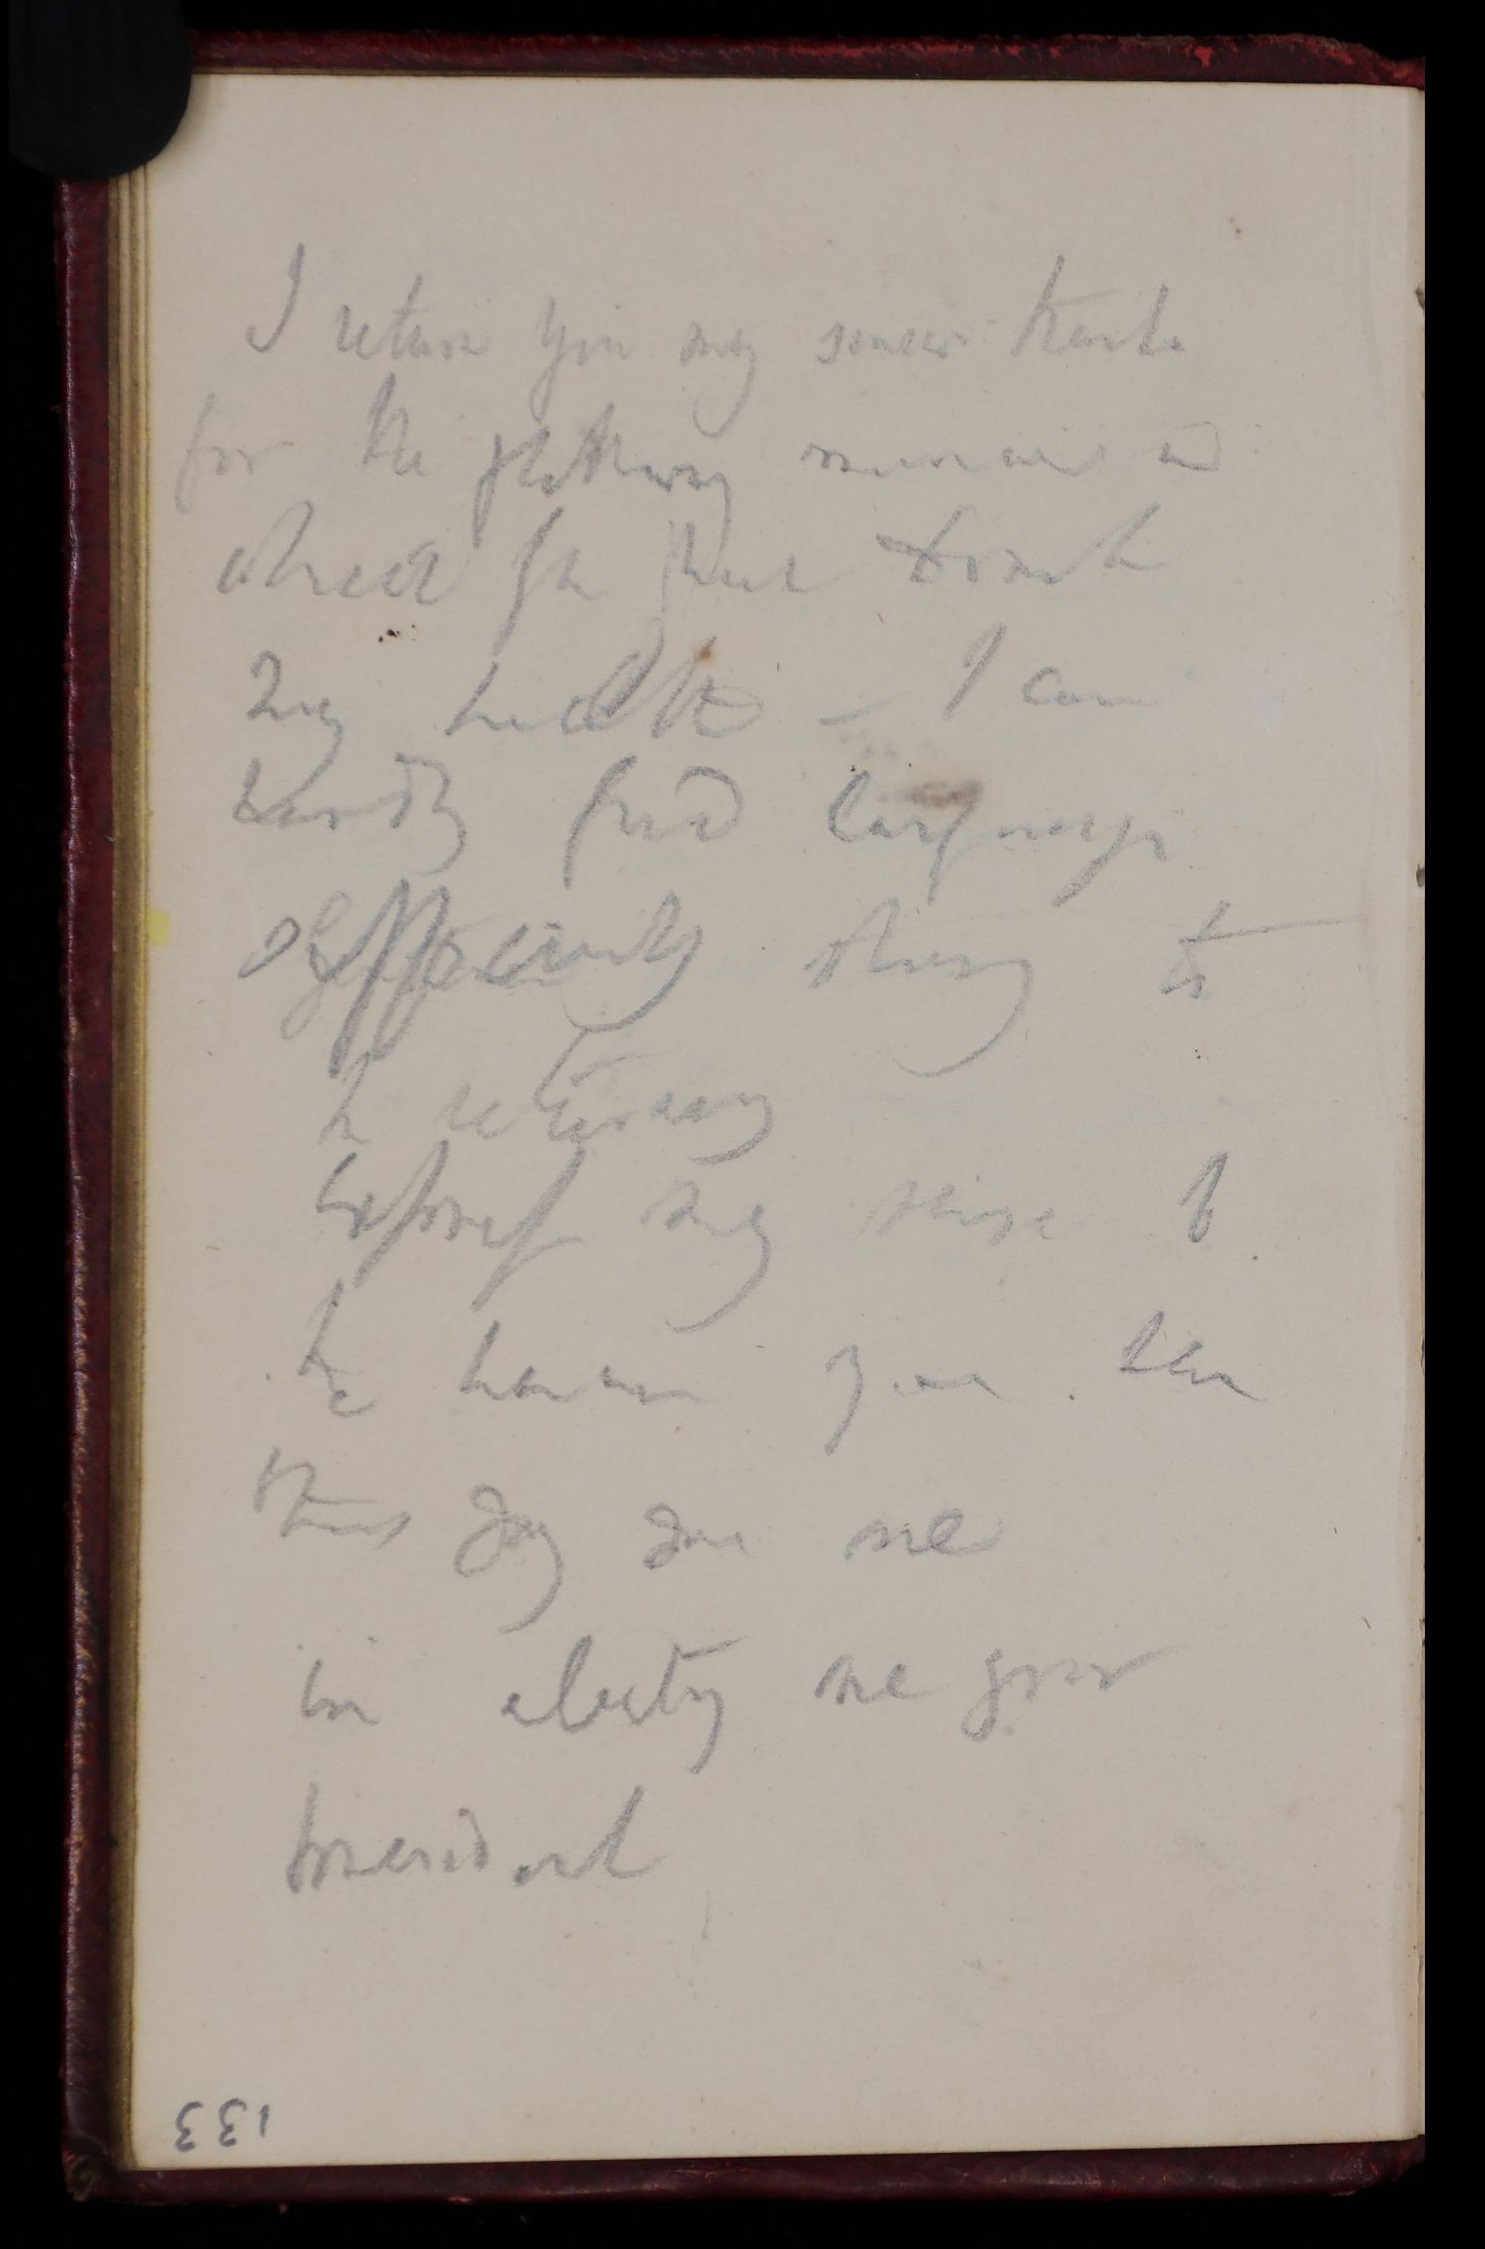 I return you my sincere thanks
for the flattering manner in
which you have drunk
my health – I can
hardly find language
sufficiently strong to
in returning
express my sense of
the honour you have
this day done me
in electing me your
president
133